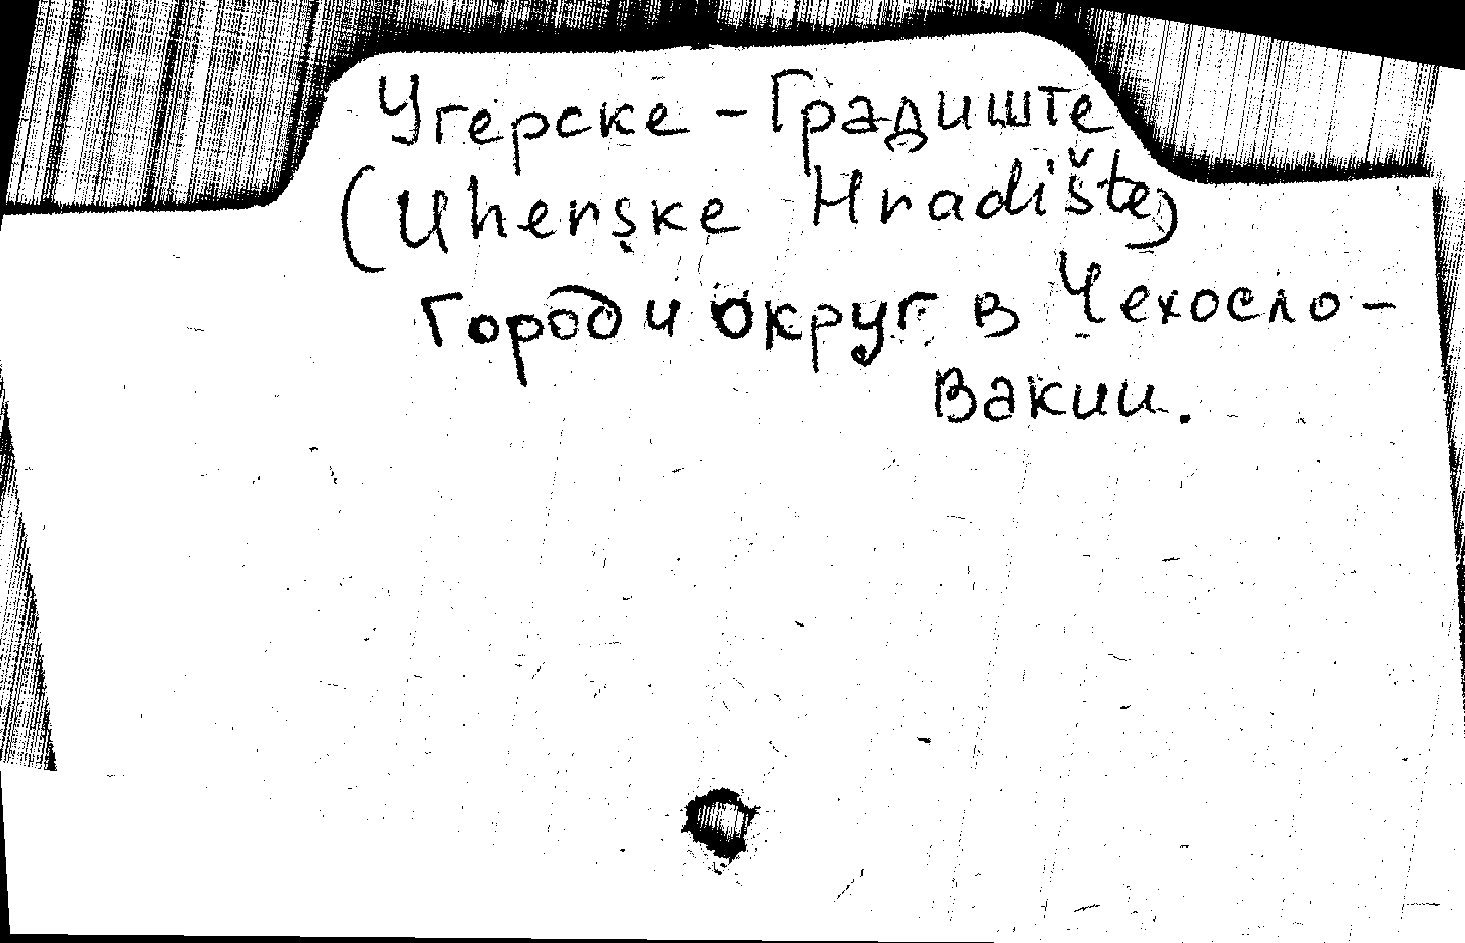 Угерске - Градиште
(Uherske Hradište)
Город и округ в Чехосло-
вакии.